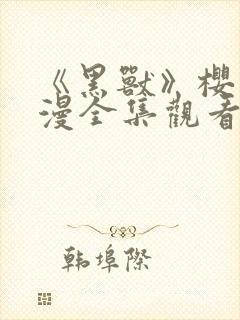 《黑獸》櫻
漫全集觀看
韩埠際